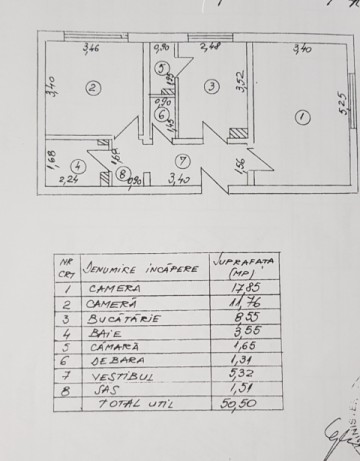 3,46
0,90
2,48
3,40
3,40
5
2
3
3,52
1
5,25
0,70
6
1,45
1,68
4
1,68
7
1,56
2,24
8
0,90
3,40
NR CRT
DENUMIRE INCĂPERE
SUPRAFAȚA (MP)
1 CAMERA 17,85
2 CAMERĂ 11,76
3 BUCĂTĂRIE 8,55
4 BAIE 3,55
5 CĂMARĂ 1,65
6 DEBARA 1,31
7 VESTIBUL 5,32
8 SAS 1,51
TOTAL UTIL 50,50